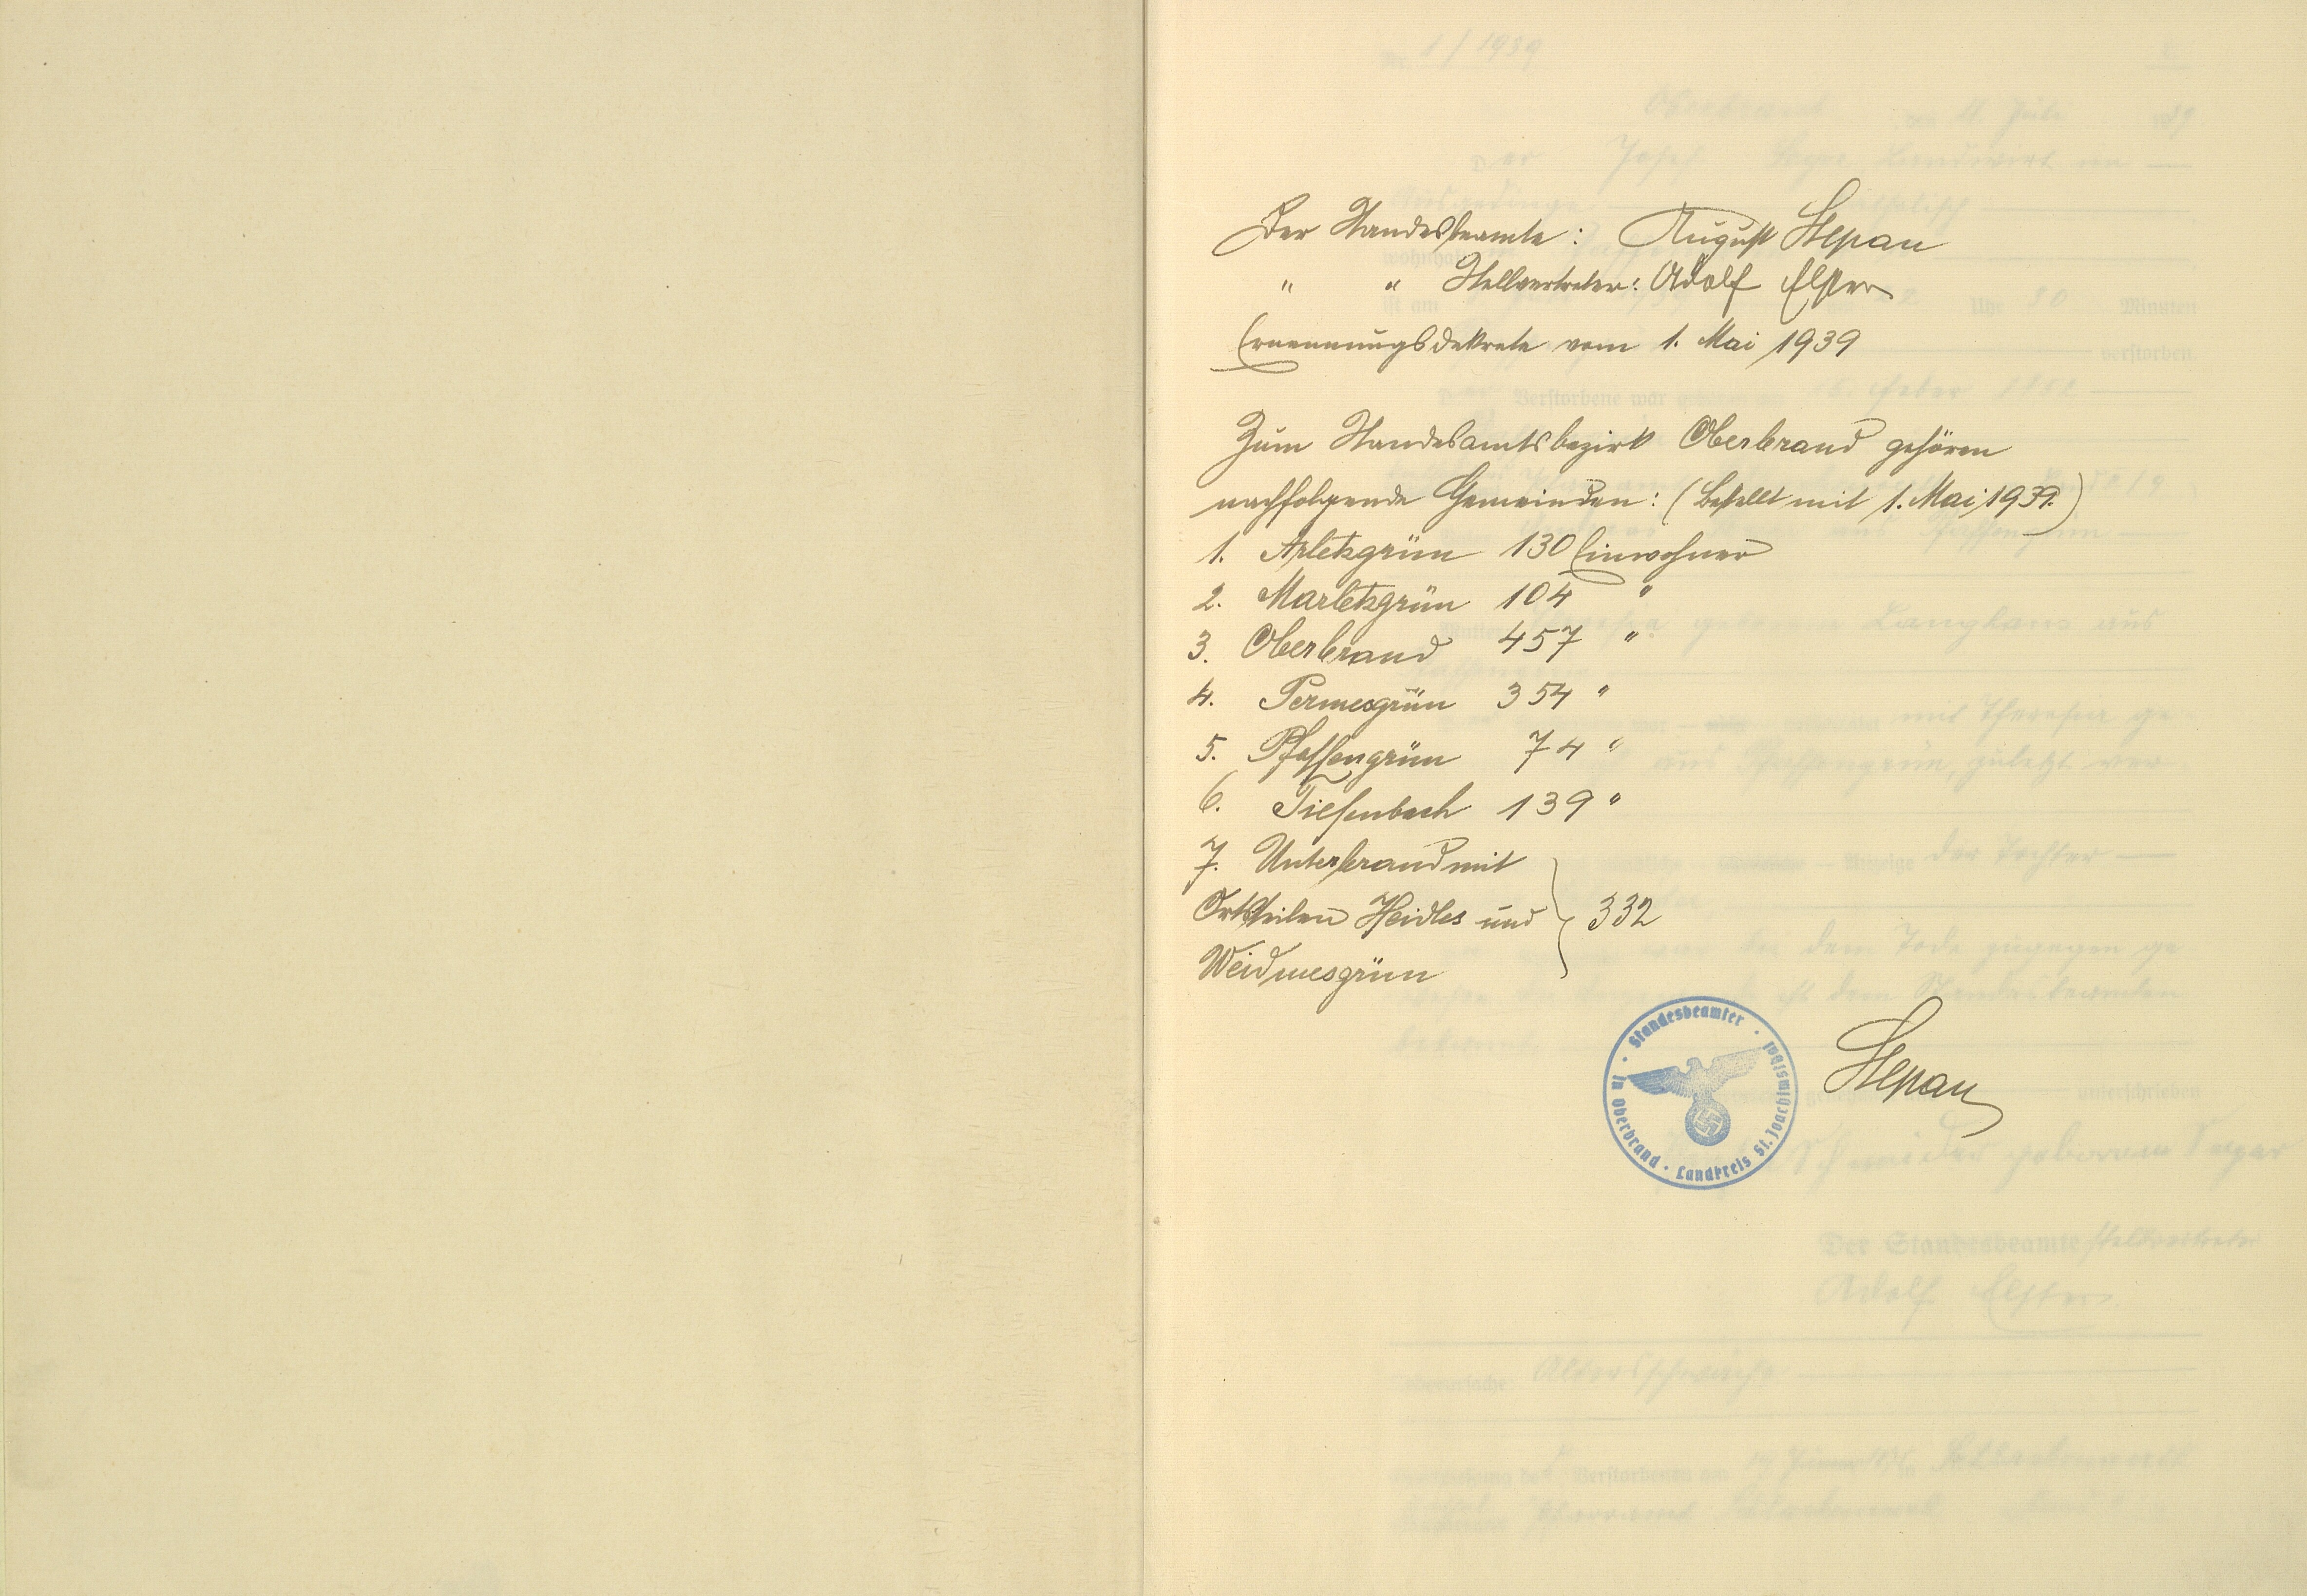 Der Standesbeamte: August Stepan
" " Stellvertreter: Adolf Elster
Ernennungsdekrete vom 1. Mai 1939
Zum Standesamtsbezirk Oberbrand gehören
nachfolgende Gemeinden: (Bestellt mit 1. Mai 1939.)
1. Arletzgrün 130 Einwohner
2. Marletzgrün 104 "
3. Oberbrand 457 "
4. Permesgrün 354 "
5. Pfaffengrün 74 "
6. Tiefenbach 139 "
7. Unterbrand mit
Ortsteilen Heidles und 332
Weidmesgrün
Standesbeamter · in Oberbrand · Landkreis St. Joachimsthal ·
Stepan